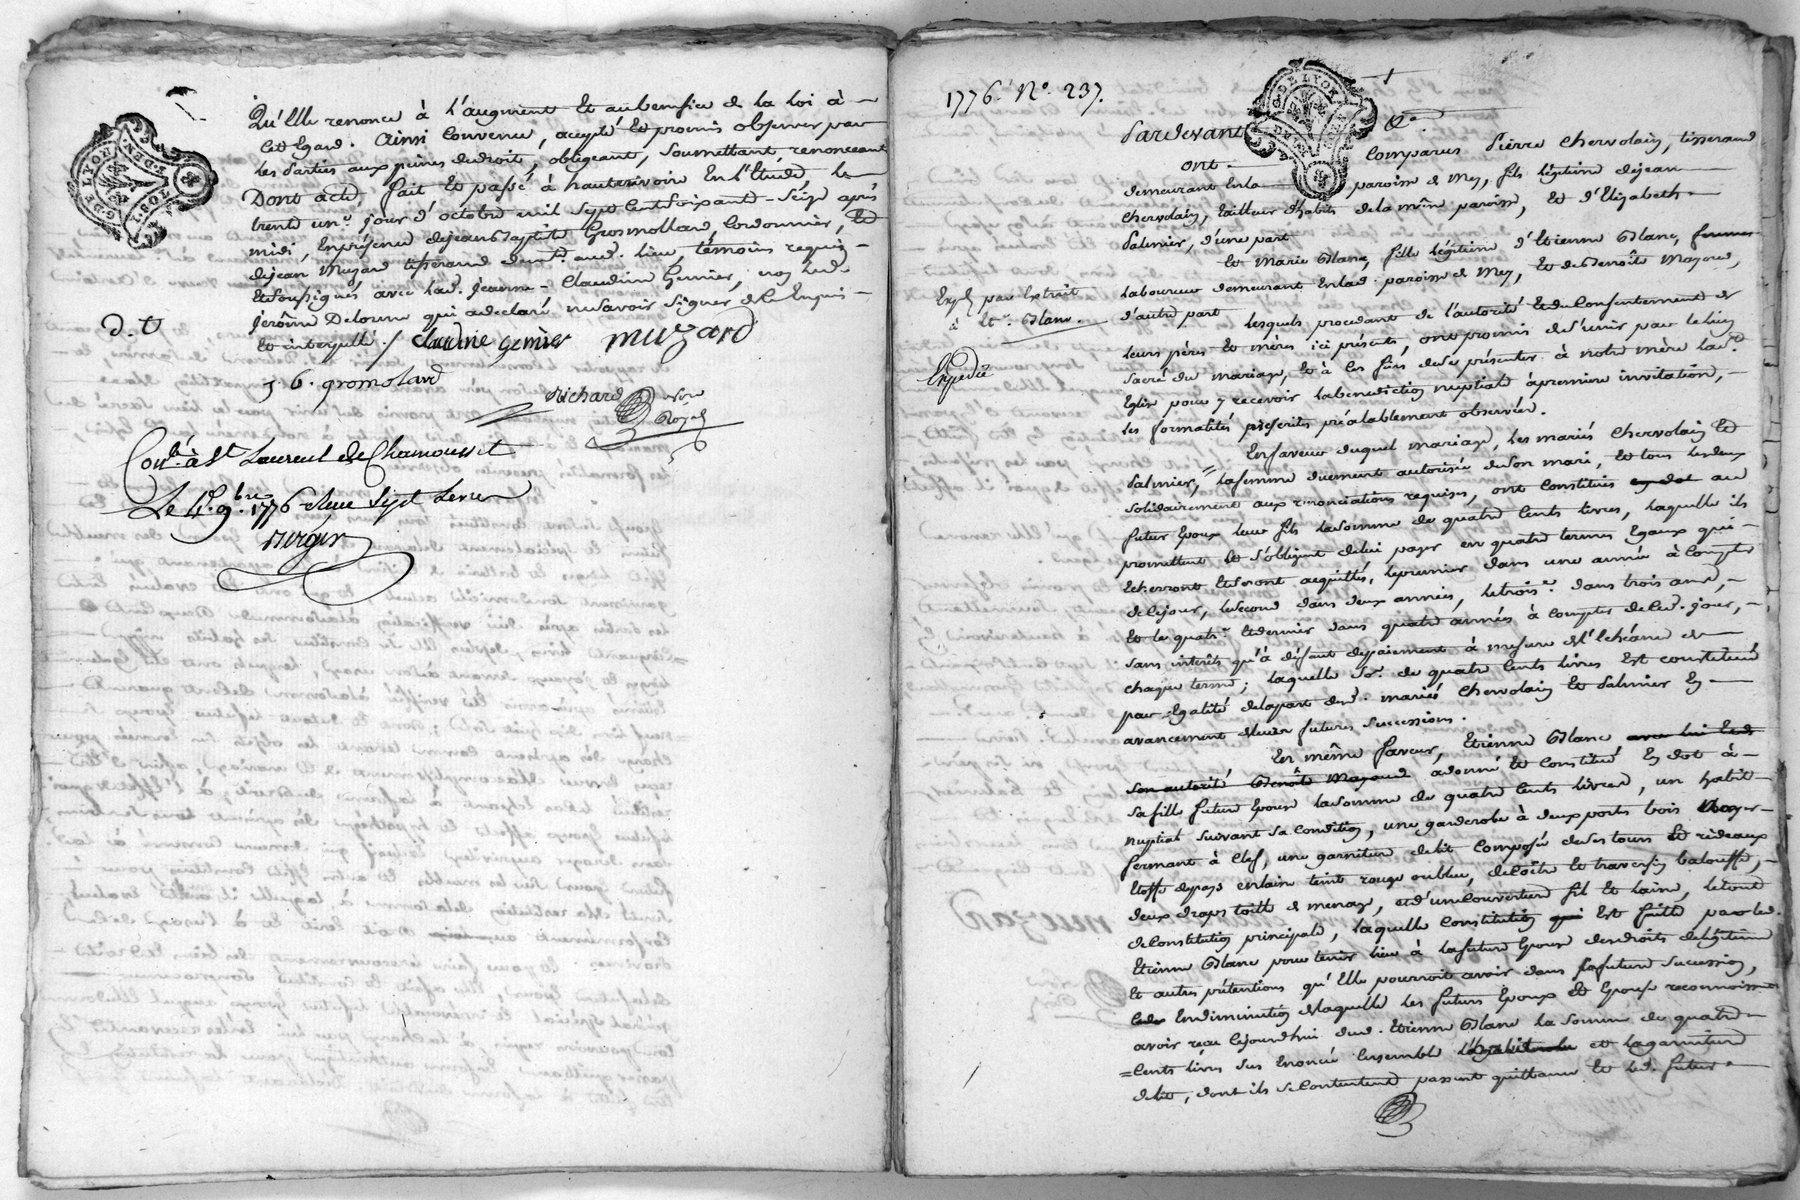 Qu'Elle renonce à l'augment Et au benefice de la Loi à
Cet Egard. Ainsi Convenu, accepté Et promis observer par
les Parties aux peines du droit, obligeant, Soumettant renonceant
Dont acte, fait Et passé à hauterivoire En l'Etude le
trente un.e jour d'octobre mil Sept Cent Soixant-Seize après
midi, En présence de jean Baptiste Grosmollard, Cordonnier, Et
de jean Muzard tisserand aud. lieu, témoins requis
Et Soussignés avec lad. Jeanne Claudine Genier, non led.
jerôme Delorme qui a declaré ne savoir Signer de Ce Enquis
Et interpellé ./.
D. t
claudine genier muzard
J. B. gromolard
Richard Nore Royal
Con.lé à St Laurent de Chamousset
Le 4e. 9.bre 1776 Reçu Sept Livres
Berger
G. DE LYON
1776. N.o 237.
G. DE LYON
Pardevant &.a
ont Comparus Pierre Chervolain, tisserand
demeurant En la paroisse de Mey, fils légitime de jean
Chervolain, tailleur d'habits de la même paroisse, Et d'Elizabeth
Palmier, d'une part
Et Marie Blanc, fille légitime d'Etienne Blanc,
Laboureur demeurant En lad. paroisse de Mey, Et de Benoîte Mayoud,
d'autre part
Exp.é par Extrait
à Et.e Blanc.
Expedié
Lesquels procedant de l'autorité Et du Consentement de
leurs pères Et mères ici présents, ont promis de S'unir par le lien
Sacré du mariage, Et à Ces fins de Se présenter à notre mère la Ste
Eglise pour y recevoir la benediction nuptiale à première invitation,
les formalités préscrites préalablement observées.
En faveur duquel mariage, les mariés Chervolain Et
Palmier, la femme duement autorisée de Son mari, Et tous les deux
Solidairement aux renonciations requises, ont Constitués en dot au
futur Epoux leur fils la Somme de quatre Cents livres, laquelle ils
promettent Et S'obligent de lui payer en quatre termes Egaux qui
Echerront Et Seront acquittés, le premier dans une année à Compter
de Ce jour, le Second dans deux années, le trois.e dans trois ans,
Et le quatr.e Et dernier dans quatre années à compter de Ced. jour,
Sans intérêts qu'à défaut de paiement à mesure de l'Echéance de
chaque terme; laquelle So.e de quatre Cents livres Est constituée
par Egalité de la part desd. mariés Chervolain Et Palmier En
avancement de leurs futures Successions.
En même faveur, Etienne Blanc avec lui
Son autorité Benoîte Mayoud a donné Et Constitué En dot à
Sa fille future Epouse la Somme de quatre Cents livres, un habit
nuptial Suivant Sa condition, une garderobe à deux portes bois
fermant à Clef, une garniture de lit Composée de Ses tours Et rideaux
Etoffe de pays en laine teint rouge ou bleu, de Coître Et traversin balouffe,
deux draps toille de menage, et d'une Couverture fil Et laine, le tout
de Constitution principale, laquelle Constitution qui Est faitte par led.
Etienne Blanc pour tenir lieu à la future Epouse des droits de légitime
Et autres prétentions qu'Elle pourroit avoir dans Sa future Succession,
En diminution de laquelle les futurs Epoux Et Epouse reconnoissent
avoir reçu Cejourdhui dud. Etienne Blanc la Somme de quatre
Cents livres Sus Enoncée Ensemble et la garniture
de lit, dont ils Se Contentent passent quittance Et led. futur